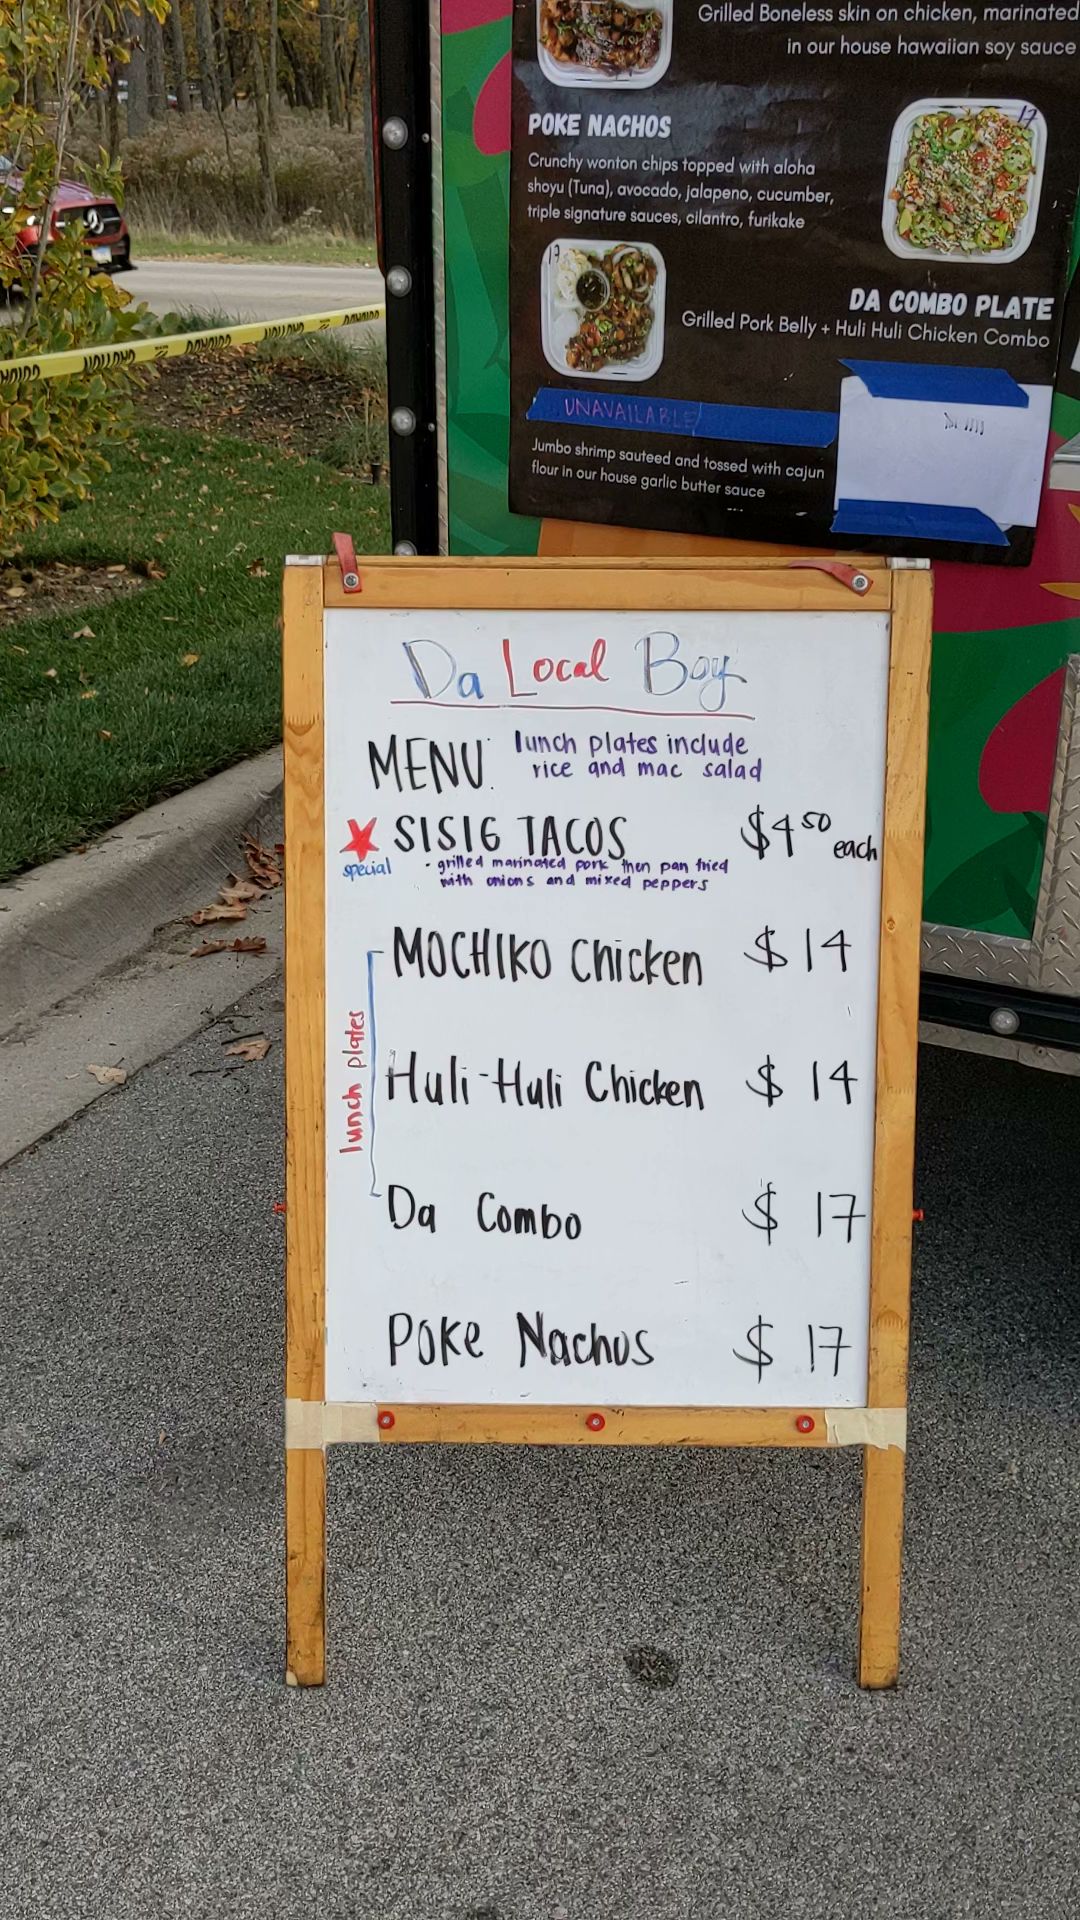 Grilled Boneless skin on chicken, marinated
in our house hawaiian soy sauce
POKE NACHOS
Crunchy wonton chips topped with aloha
shoyu (Tuna), avocado, jalapeno, cucumber,
triple signature sauces, cilantro, furikake
17
17
DA COMBO PLATE
Grilled Pork Belly + Huli Huli Chicken Combo
UNAVAILABLE
Jumbo shrimp sauteed and tossed with cajun
flour in our house garlic butter sauce
Da Local Boy
MENU: lunch plates include
rice and mac salad
SISIG TACOS $4 50 each
special
- grilled marinated pork then pan fried
with onions and mixed peppers
lunch plates
MOCHIKO Chicken $14
Huli-Huli Chicken $14
Da Combo $17
POKE Nachos $17